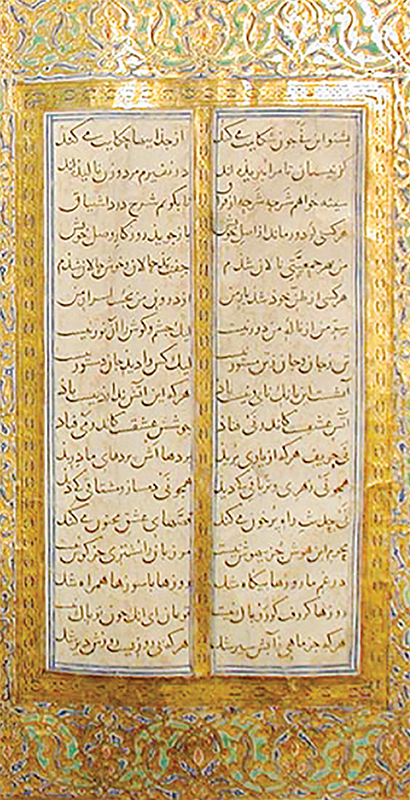 بشنو این نی چون شکایت می کند از جداییها حکایت می کند
کز نیستان تا مرا ببریده اند در نفیرم مرد و زن نالیده اند
سینه خواهم شرحه شرحه از فراق تا بگویم شرح درد اشتیاق
هر کسی کو دور ماند از اصل خویش باز جوید روزگار وصل خویش
من بهر جمعیتی نالان شدم جفت بدحالان و خوش حالان شدم
هر کسی از ظن خود شد یار من از درون من نجست اسرار من
سر من از ناله من دور نیست لیک چشم و گوش را آن نور نیست
تن ز جان و جان ز تن مستور نیست لیک کس را دید جان دستور نیست
آتشست این بانگ نای و نیست باد هر که این آتش ندارد نیست باد
آتش عشقست کاندر نی فتاد جوشش عشقست کاندر می فتاد
نی حریف هر که از یاری برید پردهااش پردهای ما درید
همچو نی زهری و تریاقی که دید همچو نی دمساز و مشتاقی که دید
نی حدیث راه پرخون می کند قصهای عشق مجنون می کند
محرم این هوش جز بیهوش نیست مر زبان را مشتری جز گوش نیست
در غم ما روزها بیگاه شد روزها با سوزها همراه شد
روزها گر رفت گو رو باک نیست تو بمان ای آنک چون تو پاک نیست
هر که جز ماهی ز آبش سیر شد هر که بی روزیست روزش دیر شد